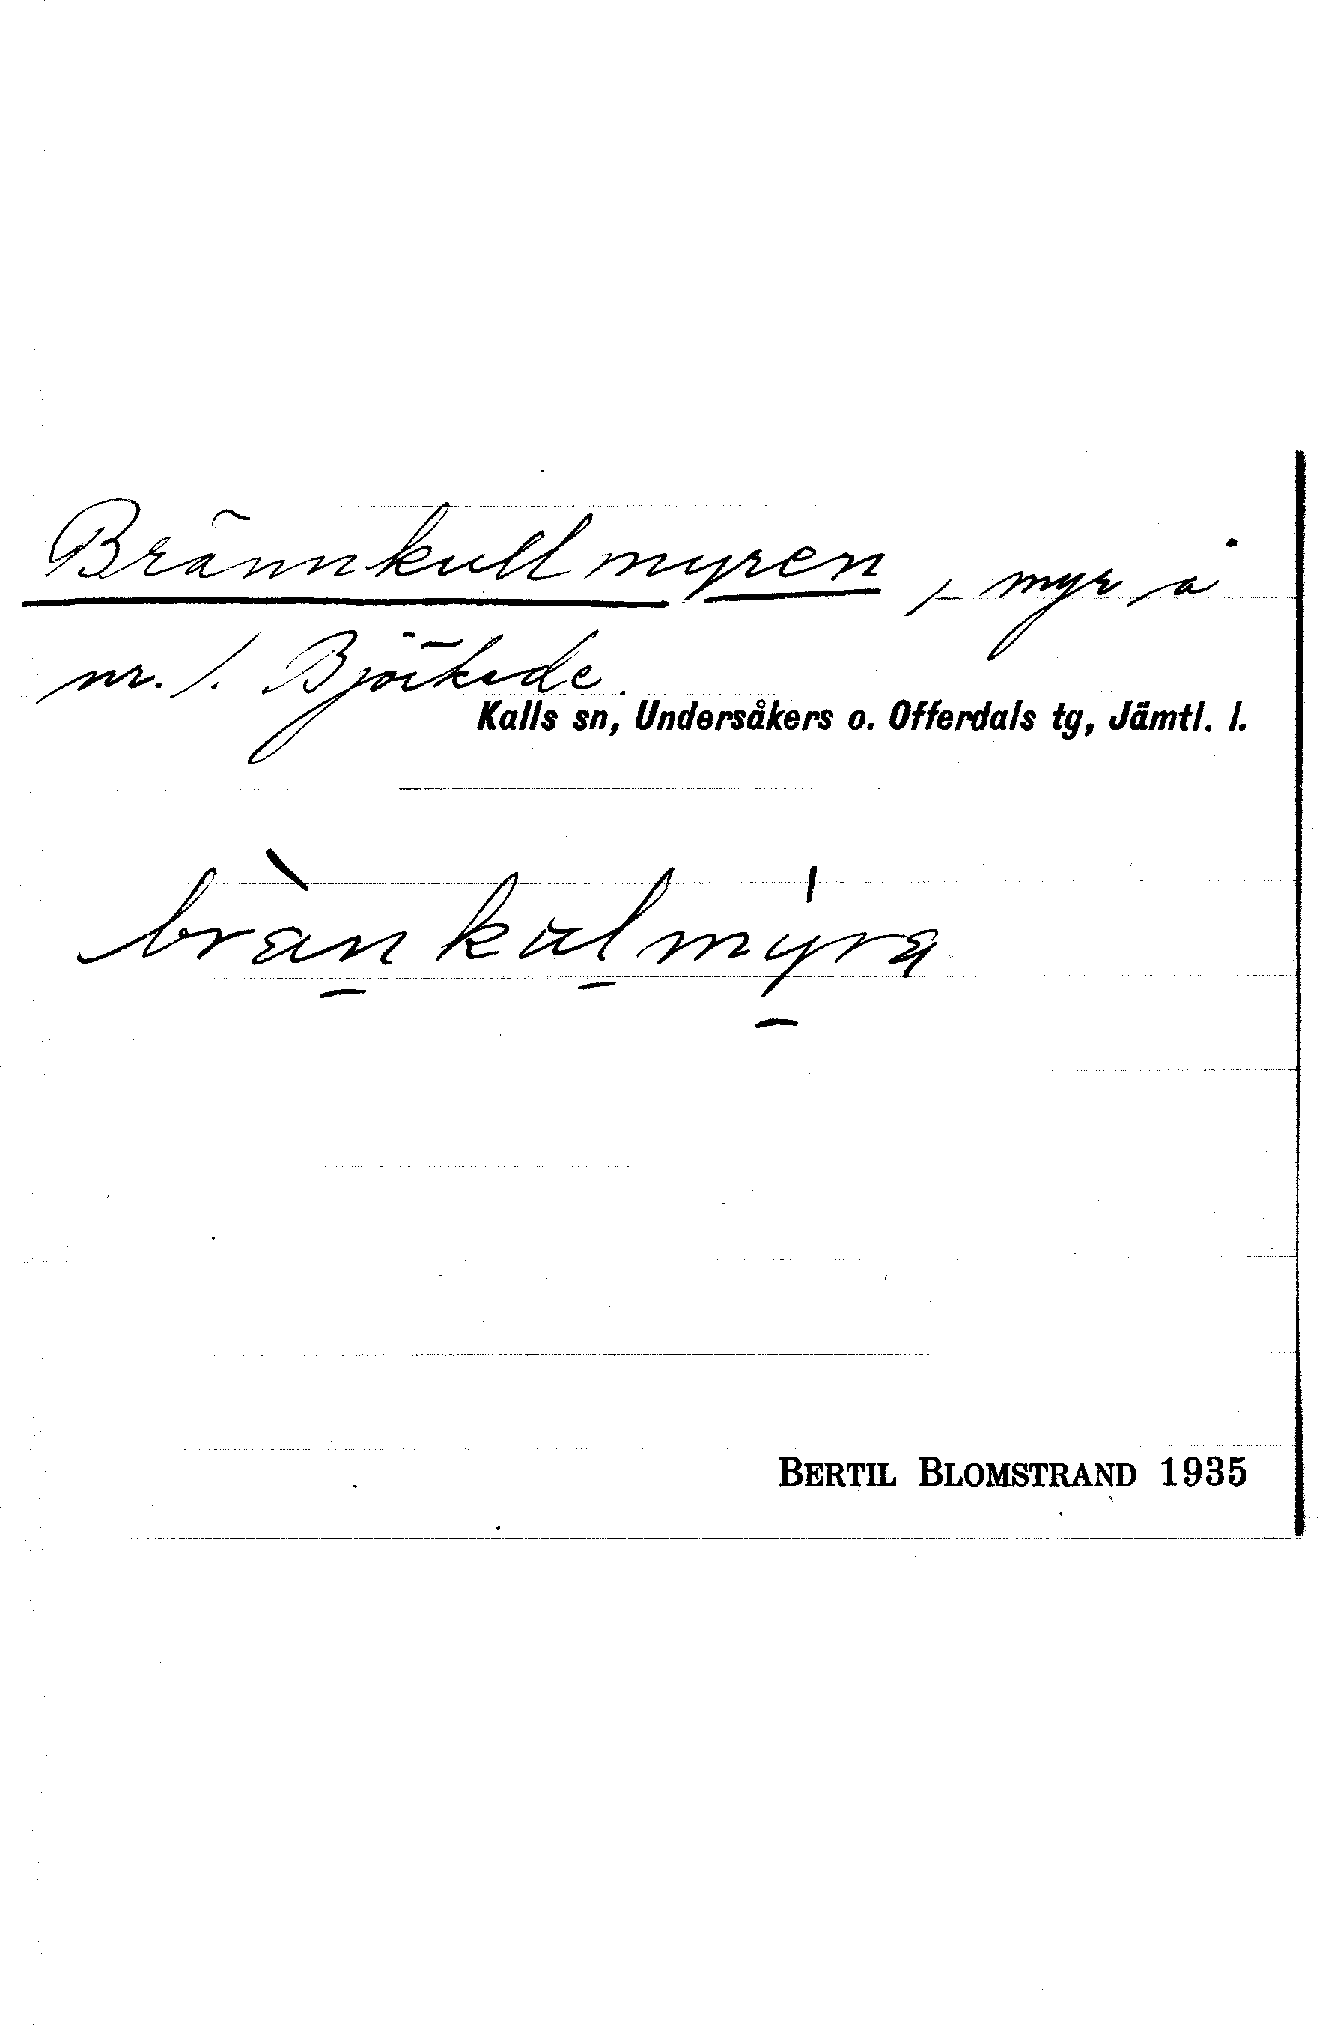 Brännkullmyren, myr å
nr. 1. Björkede.
Kalls sn, Undersåkers o. Offerdals tg, Jämtl. l.
brànkulmýra
BERTIL BLOMSTRAND 1935